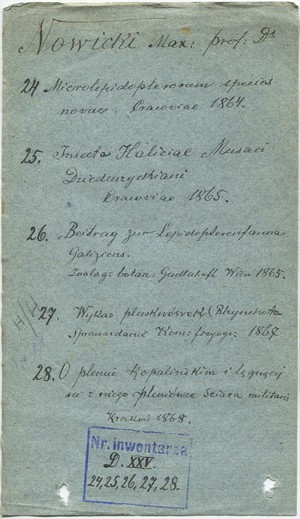 Nowicki Max: prof: Dr
24 Microlepidopterorum species
novae. Cracoviae 1864.
25. Insecta Haliciae Musaei
Dzieduszyckiani
Cracoviae 1865.
26. Beitrag zur Lepidopterenfauna
Galiziens.
Zoolog: botan: Gesellschaft Wien 1865.
27. Wykaz pluskwówek (Rhynchota
Sprawozdanie Kom: fizyogr: 1867
28. O plenie Kopalińskim i lęgnącej
się z niego pleniówce Sciara militaris
Kraków 1868.
Nr. inwentarza
D. XXV.
24, 25, 26, 27, 28.